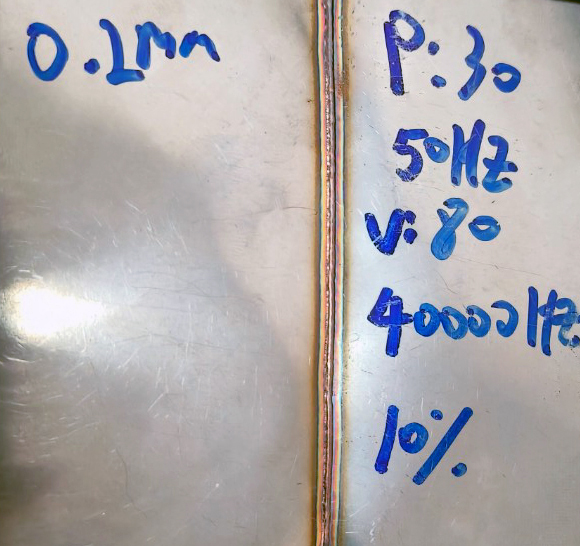 0.1mm
P:30
50Hz
V:80
40000Hz
10%